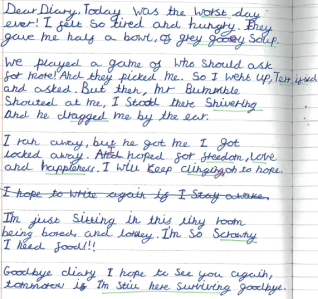 Dear Diary, Today was the worst day
ever! I felt so tired and hungry. They
gave me half a bowl, of grey gooey Soup.
We played a game of who should ask
for more! And they picked me. So I went up,
and asked. But then, Mr Bummble
Shouted at me, I Stood there Shivering
And he dragged me by the ear.
I ran away, but he got me I got
locked away. And hoped for freedom, love
and happieness. I will keep clinging on to hope.
I hope to write again if I Stay awake.
I'm just Sitting in this tiny room
being bored and loney. I'm so Scrawny
I need food!!
Goodbye diary I hope to See you again,
tommorow if I'm Still here Surviving goodbye.